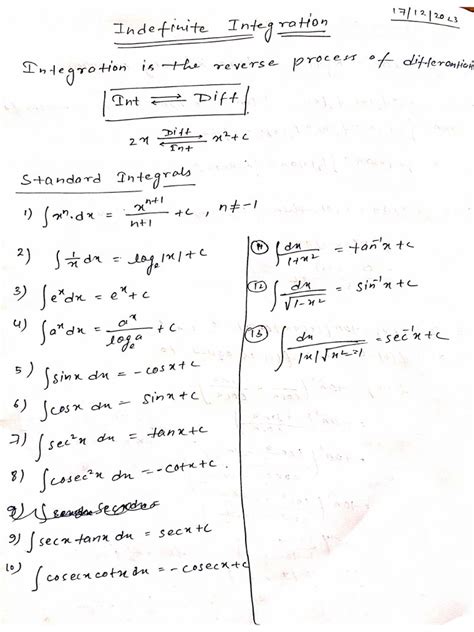 17/12/2023
Indefinite Integration
Integration is the reverse process of differention
Int ⇌ Diff
2x ⇌ x²+c
Diff
Int
Standard Integrals
1) ∫xⁿ.dx = xⁿ⁺¹/n+1 + c , n≠-1
2) ∫1/x dx = logₑ|x|+c
3) ∫eˣdx = eˣ+c
4) ∫aˣdx = aˣ/logₑa + c
5) ∫sinx dx = -cosx+c
6) ∫cosx dx = sinx+c
7) ∫sec²x dx = tanx+c
8) ∫cosec²x dx = -cotx+c.
9) ∫secx tanx dx = secx+c
10) ∫cosecx cotx dx = -cosecx+c
11 ∫dx/1+x² = tan⁻¹x+c
12 ∫dx/√1-x² = sin⁻¹x+c
13 ∫dx/|x|√x²-1 = sec⁻¹x+c